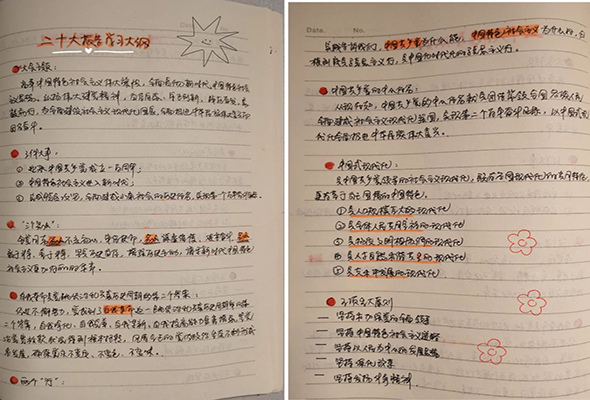 二十大报告学习大纲
大会主题：
高举中国特色社会主义伟大旗帜，全面贯彻新时代中国特色社会
主义思想，弘扬伟大建党精神，自信自强、守正创新，踔厉奋发、勇
毅前行，为全面建设社会主义现代化国家、全面推进中华民族伟大复兴而
团结奋斗。
3件大事：
① 迎来中国共产党成立一百周年；
② 中国特色社会主义进入新时代；
③ 完成脱贫攻坚、全面建成小康社会的历史任务，实现第一个百年奋斗目标。
"三个务必"：
全党同志务必不忘初心、牢记使命，务必谦虚谨慎、艰苦奋斗，务必
敢于斗争、善于斗争，坚定历史自信，增强历史主动，谱写新时代中国特色
社会主义更加绚丽的华章。
自我革命是跳出治乱兴衰历史周期率的第二个答案：
二个答案，自我净化、自我完善、自我革新、自我提高
确保党永不变质、不变色、不变味。
两个"行"：
Date. No.
实践告诉我们，中国共产党为什么能，中国特色社会主义为什么好，归
根到底是马克思主义行，是中国化时代化的马克思主义行。
中国共产党的中心任务：
从现在起，中国共产党的中心任务就是团结带领全国各族人民
全面建成社会主义现代化强国、实现第二个百年奋斗目标，以中国式现
代化全面推进中华民族伟大复兴。
中国式现代化：
是中国共产党领导的社会主义现代化，既有各国现代化的共同特征，
更有基于自己国情的中国特色。
① 是人口规模巨大的现代化
② 是全体人民共同富裕的现代化
③ 是物质文明和精神文明相协调的现代化
④ 是人与自然和谐共生的现代化
⑤ 是走和平发展道路的现代化
5项重大原则
— 坚持和加强党的全面领导
— 坚持中国特色社会主义道路
— 坚持以人民为中心的发展思想
— 坚持深化改革
— 坚持发扬斗争精神